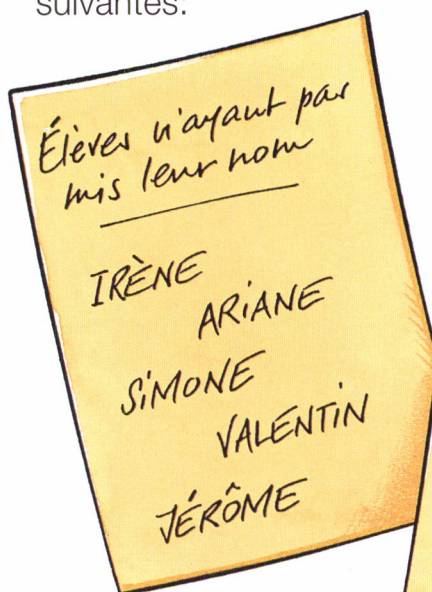 suivantes:
Élèves n'ayant pas
mis leur nom
IRÈNE
ARIANE
SIMONE
VALENTIN
JÉRÔME